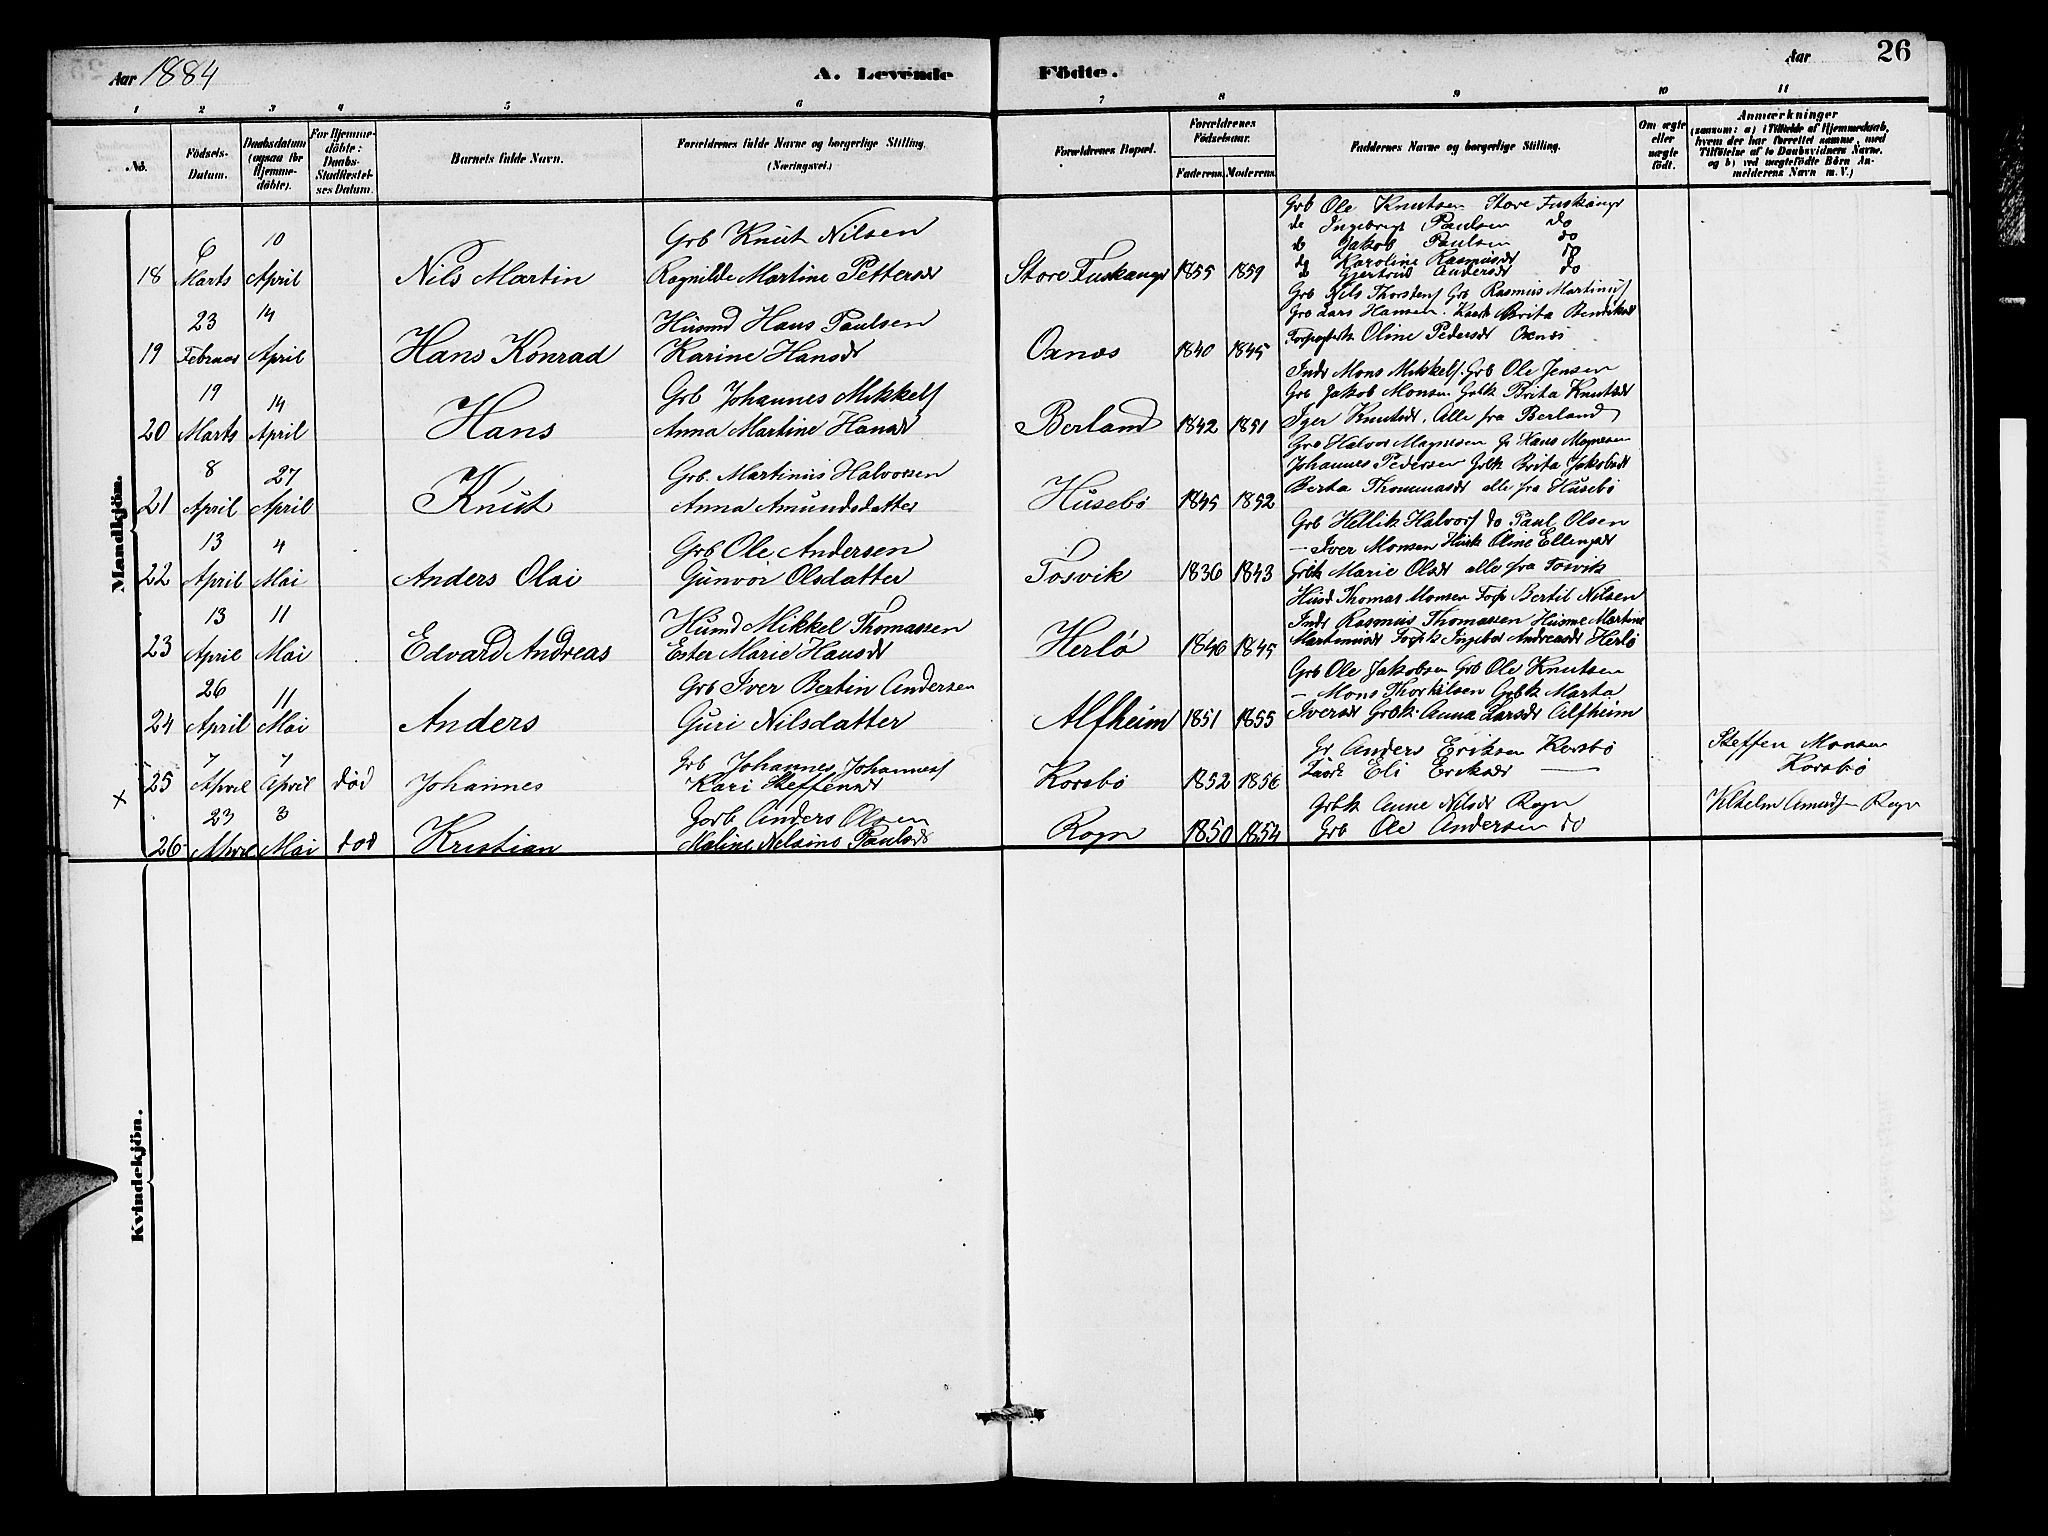 Aar 1884
A. Levende
Födte.
Aar
26
1 2 3 4 5 6 7 8 9 10 11
No.
Födsels-Datum.
Daabsdatum (ogsaa for Hjemme-döbte).
For Hjemme-döbte: Daabs-Stadfæstel-ses Datum.
Barnets fulde Navn.
Forældrenes fulde Navne og borgerlige Stilling. (Næringsvei.)
Forældrenes Bopæl.
Forældrenes Födselsaar.
Faderens. Moderens.
Faddernes Navne og borgerlige Stilling.
Om ægte eller uægte födt.
Anmærkninger
(saasom: a) i Tilfælde af Hjemmedaab, hvem der har forrettet samme, med Tilföielse af to Daabsvidners Navne. og b) ved uægtefödte Börn An-melderens Navn m. V.)
Mandkjön.
18 6 Marts 10 April Nils Martin
Grb Knut Nilsen
Ragnilde Martine Pettersdr
Store Fuskanger 1855 1859
Grb Ole Knutsen Store Fuskanger
do Ingebrigt Paulsen do
do Jakob Paulsen do
do Karoline Rasmusdr do
do Gjertrud Andersdr do
19 23 Februar 14 April Hans Konrad
Husmd Hans Paulsen
Karine Hansdr
Oxnæs 1840 1845
Grb Nils Thorstens Grb Rasmus Martinus
Grb Lars Hansen. Brita Bendiksdr
Oline Pedersdr Oxnæs
20 19 Marts 14 April Hans
Grb Johannes Mikkels
Anna Martine Hansdr
Berland 1842 1851
Inds Mons Mikkels. Grb Ole Jensen
Grb Jakob Monsen Grbk Brita Knutsdr
Knutsdr. Alle fra Berland
21 8 April 27 April Knut
Grb. Martinus Halvorsen
Anna Amundsdatter
Husebö 1845 1852
Grb Halvor Magnesen G Hans Magnesen
Johannes Pedersen Grbk Brita Jakobsdr
Berta Thommasdr alle fra Husebö
22 13 April 4 Mai Anders Olai
Grb Ole Andersen
Gunvor Olsdatter
Tosvik 1836 1843
Grb Hellik Halvors do Paul Olsen
— Iver Monsen Husk Oline Ellingsdr
Grbk Marie Olsdr alle fra Tosvik
23 13 April 11 Mai Edvard Andreas
Husmd Mikkel Thomassen
Ester Marie Hansdr
Herlö 1846 1845
Husmd Thomas Monsen Forp Bertil Nilsen
Inds Rasmus Thomassen Husme Martine
Martinusdr Forpk Ingebor Andreasdr Herlö
24 26 April 11 Mai Anders
Grb Iver Bertin Andersen
Guri Nilsdatter
Alfheim 1851 1855
Grb Ole Jakobsen Grb Ole Knutsen
— Mons Thorkilsen Grbk Marta
Iversdr Grbk Anna Larsdr Alfheim
25 7 April 7 April död Johannes
Grb Johannes Johannes
Kari Steffensdr
Korsbö 1852 1856
Gr Anders Eriksen Korsbö
Eli Eriksdr —
Steffen Monsen
Korsbö
× 26 23 April 3 Mai död Kristian
Gorb Anders Olsen
Maline Nelsine Paulsdr
Rogn 1850 1854
Grbk Anne Nilsdr Rogn
Grb Ole Andersen do
Vilhelm Amuds Rogn
Kvindekjön.